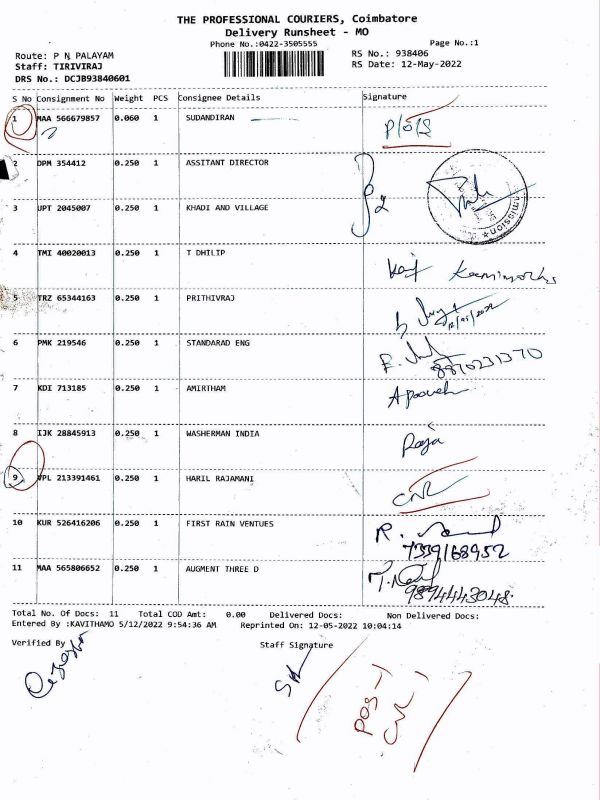 THE PROFESSIONAL COURIERS, Coimbatore
Delivery Runsheet - MO
Phone No.:0422-3505555
Page No.:1
Route: P N PALAYAM
RS No.: 938406
Staff: TIRIVIRAJ
RS Date: 12-May-2022
DRS No.: DCJB93840601
S No Consignment No Weight PCS Consignee Details Signature
1 MAA 566679857 0.060 1 SUDANDIRAN
2 DPM 354412 0.250 1 ASSITANT DIRECTOR
3 UPT 2045007 0.250 1 KHADI AND VILLAGE
4 TMI 40020013 0.250 1 T DHILIP
5 TRZ 65344163 0.250 1 PRITHIVRAJ
6 PMK 219546 0.250 1 STANDARAD ENG
8870231370
7 KDI 713185 0.250 1 AMIRTHAM
8 IJK 28845913 0.250 1 WASHERMAN INDIA Raja
9 VPL 213391461 0.250 1 HARIL RAJAMANI
10 KUR 526416206 0.250 1 FIRST RAIN VENTUES
7339168952
11 MAA 565806652 0.250 1 AUGMENT THREE D
9894443048
Total No. Of Docs: 11 Total COD Amt: 0.00 Delivered Docs: Non Delivered Docs:
Entered By :KAVITHAMO 5/12/2022 9:54:36 AM Reprinted On: 12-05-2022 10:04:14
Verified By
Staff Signature